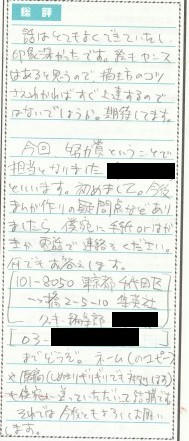 総評
話はとてもよくできていたし、
印象深かったです。絵も センス
はあると思うので、描き方のコツ
さえわかればすぐ上達するので
はないでしょうか。期待してます。
今回、努力賞ということで
担当になりました
といいます。初めまして。今後
まんが作りの疑問点などあり
ましたら、僕宛に手紙orハガ
キか電話で連絡をください。
何でもお答えします。
101-8050 東京都千代田区
一ツ橋2-5-10 集英社
編集部
03-
までどうぞ。ネーム(のコピー)
や原稿(しめきりギリギリでも
送っていただいて結構です
それでは今後ともよろしくお願い
します。